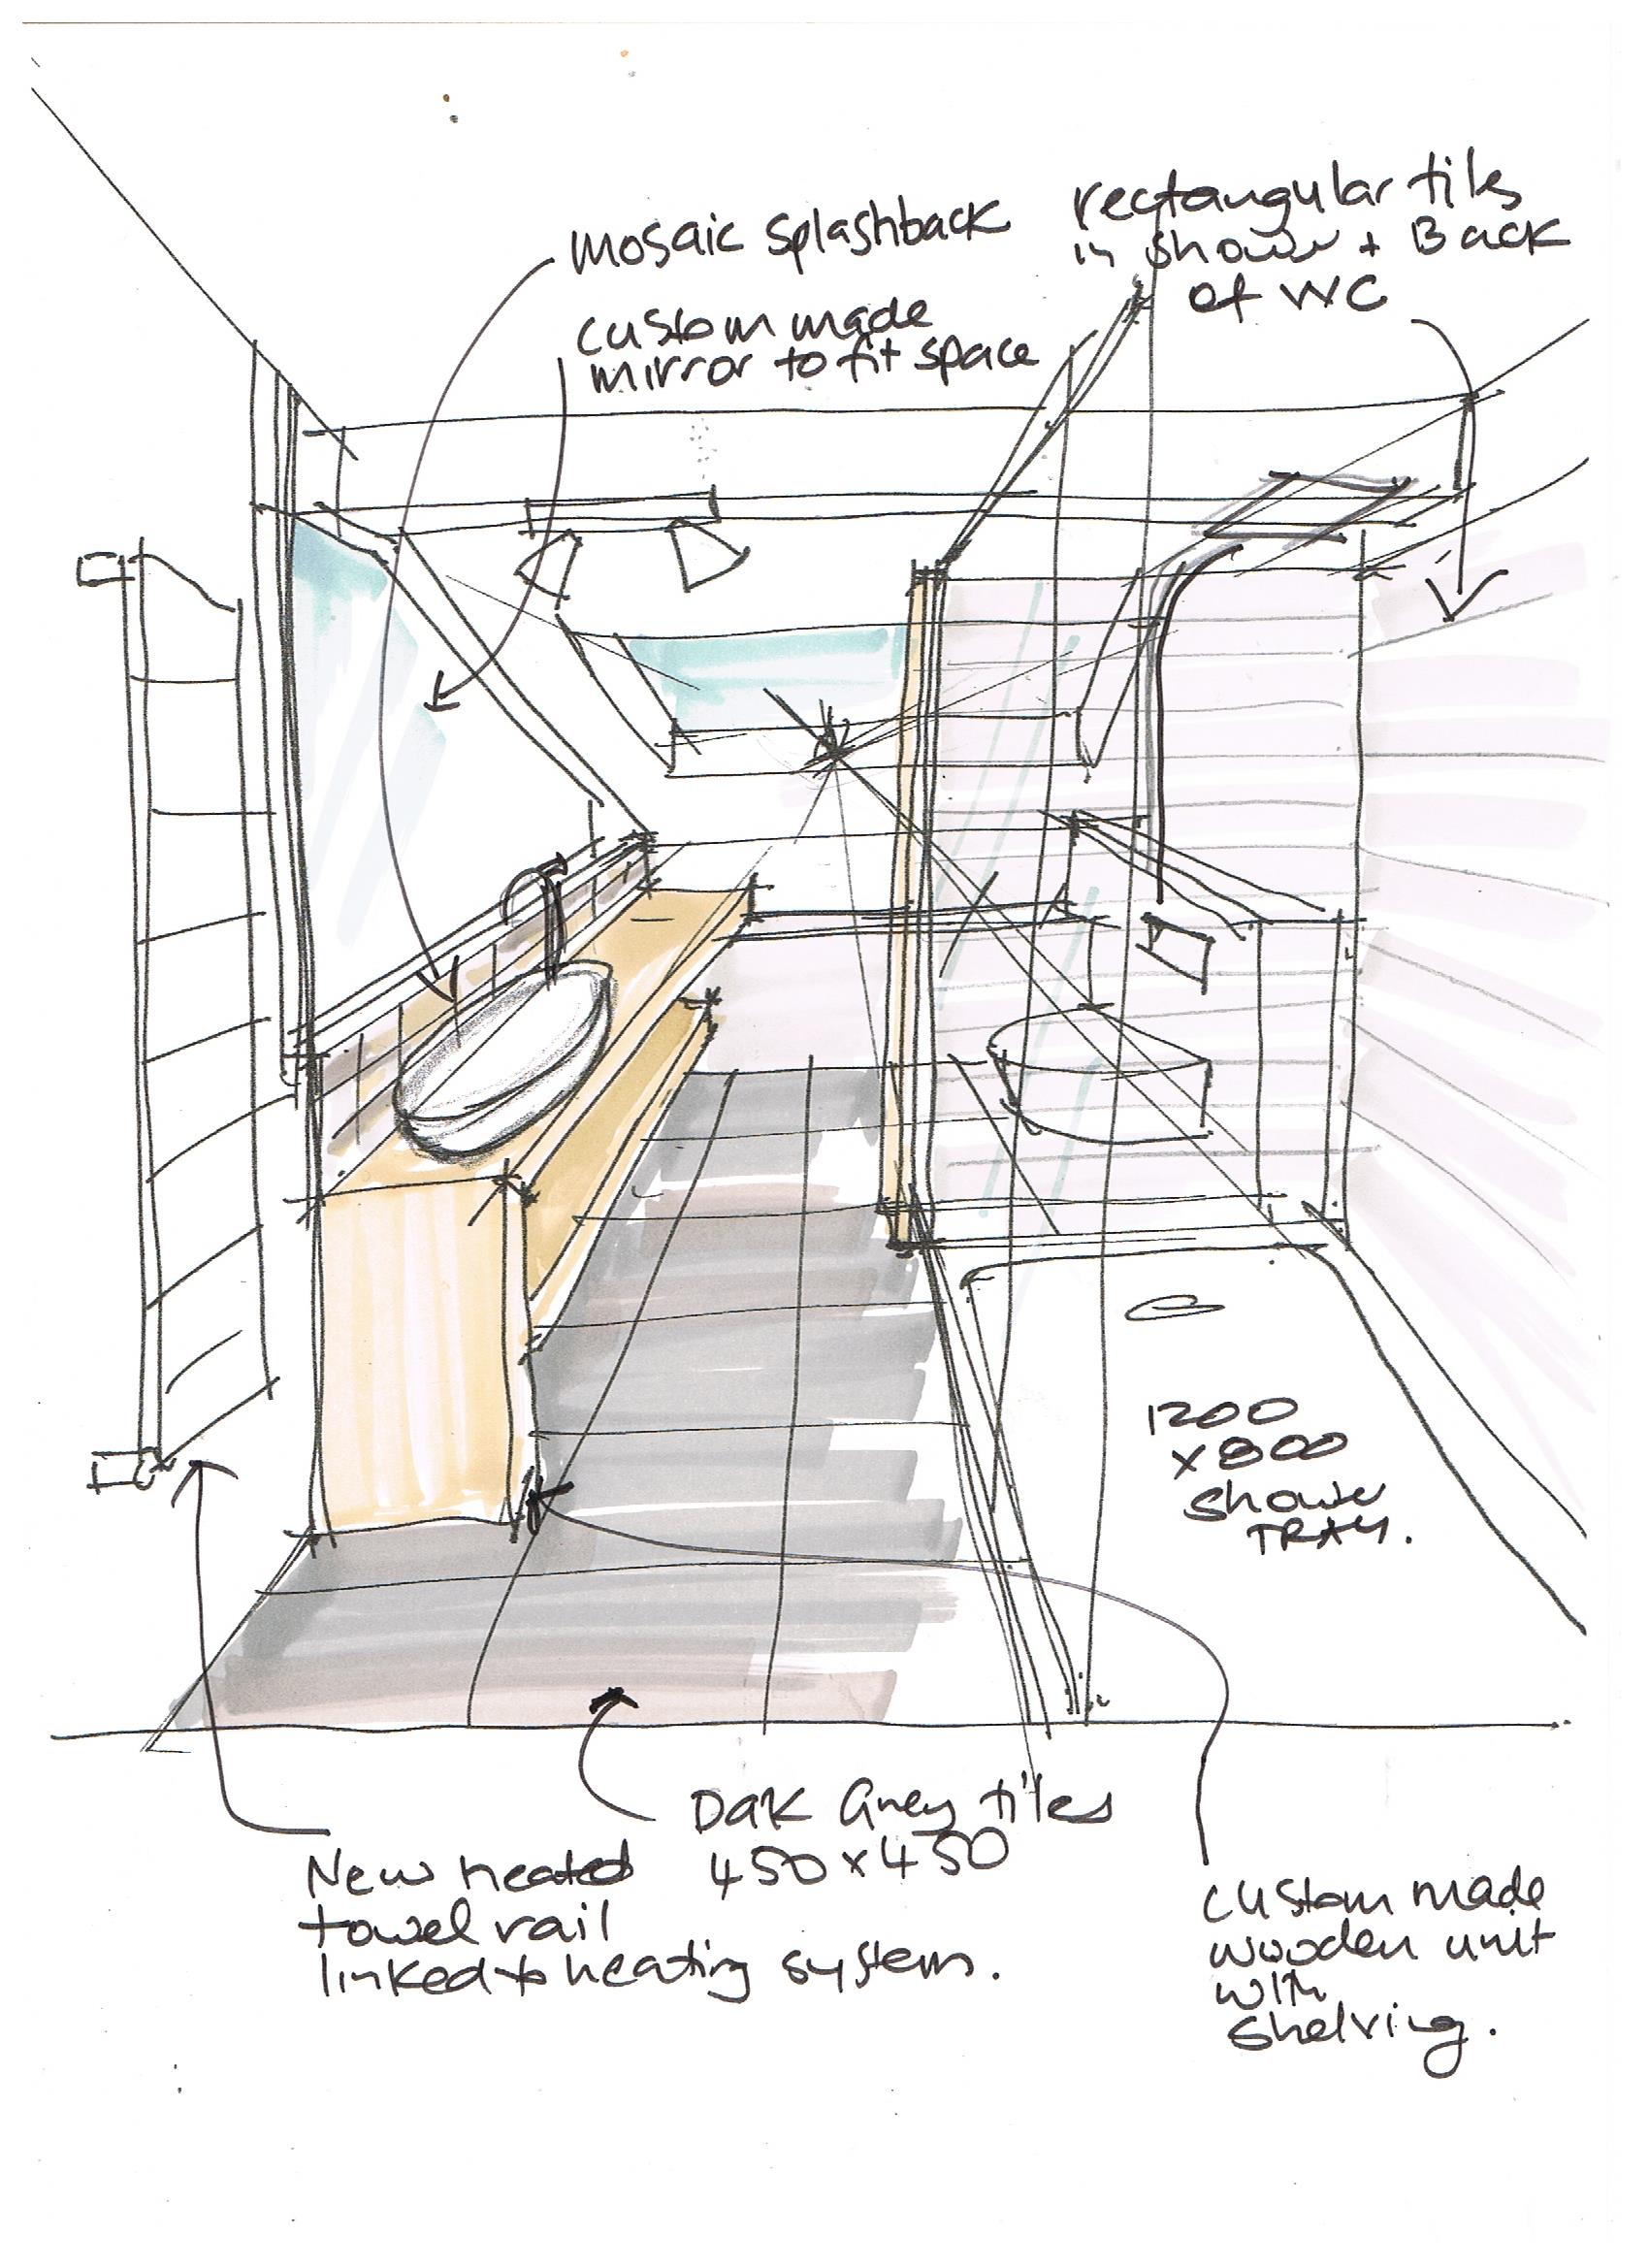 mosaic splashback
custom made
mirror to fit space
rectangular tiles
in shower + Back
of WC
1200
x 800
shower
TRAY.
Dark Grey tiles
450 x 450
New heated
towel rail
linked to heating system.
custom made
wooden unit
with
shelving.